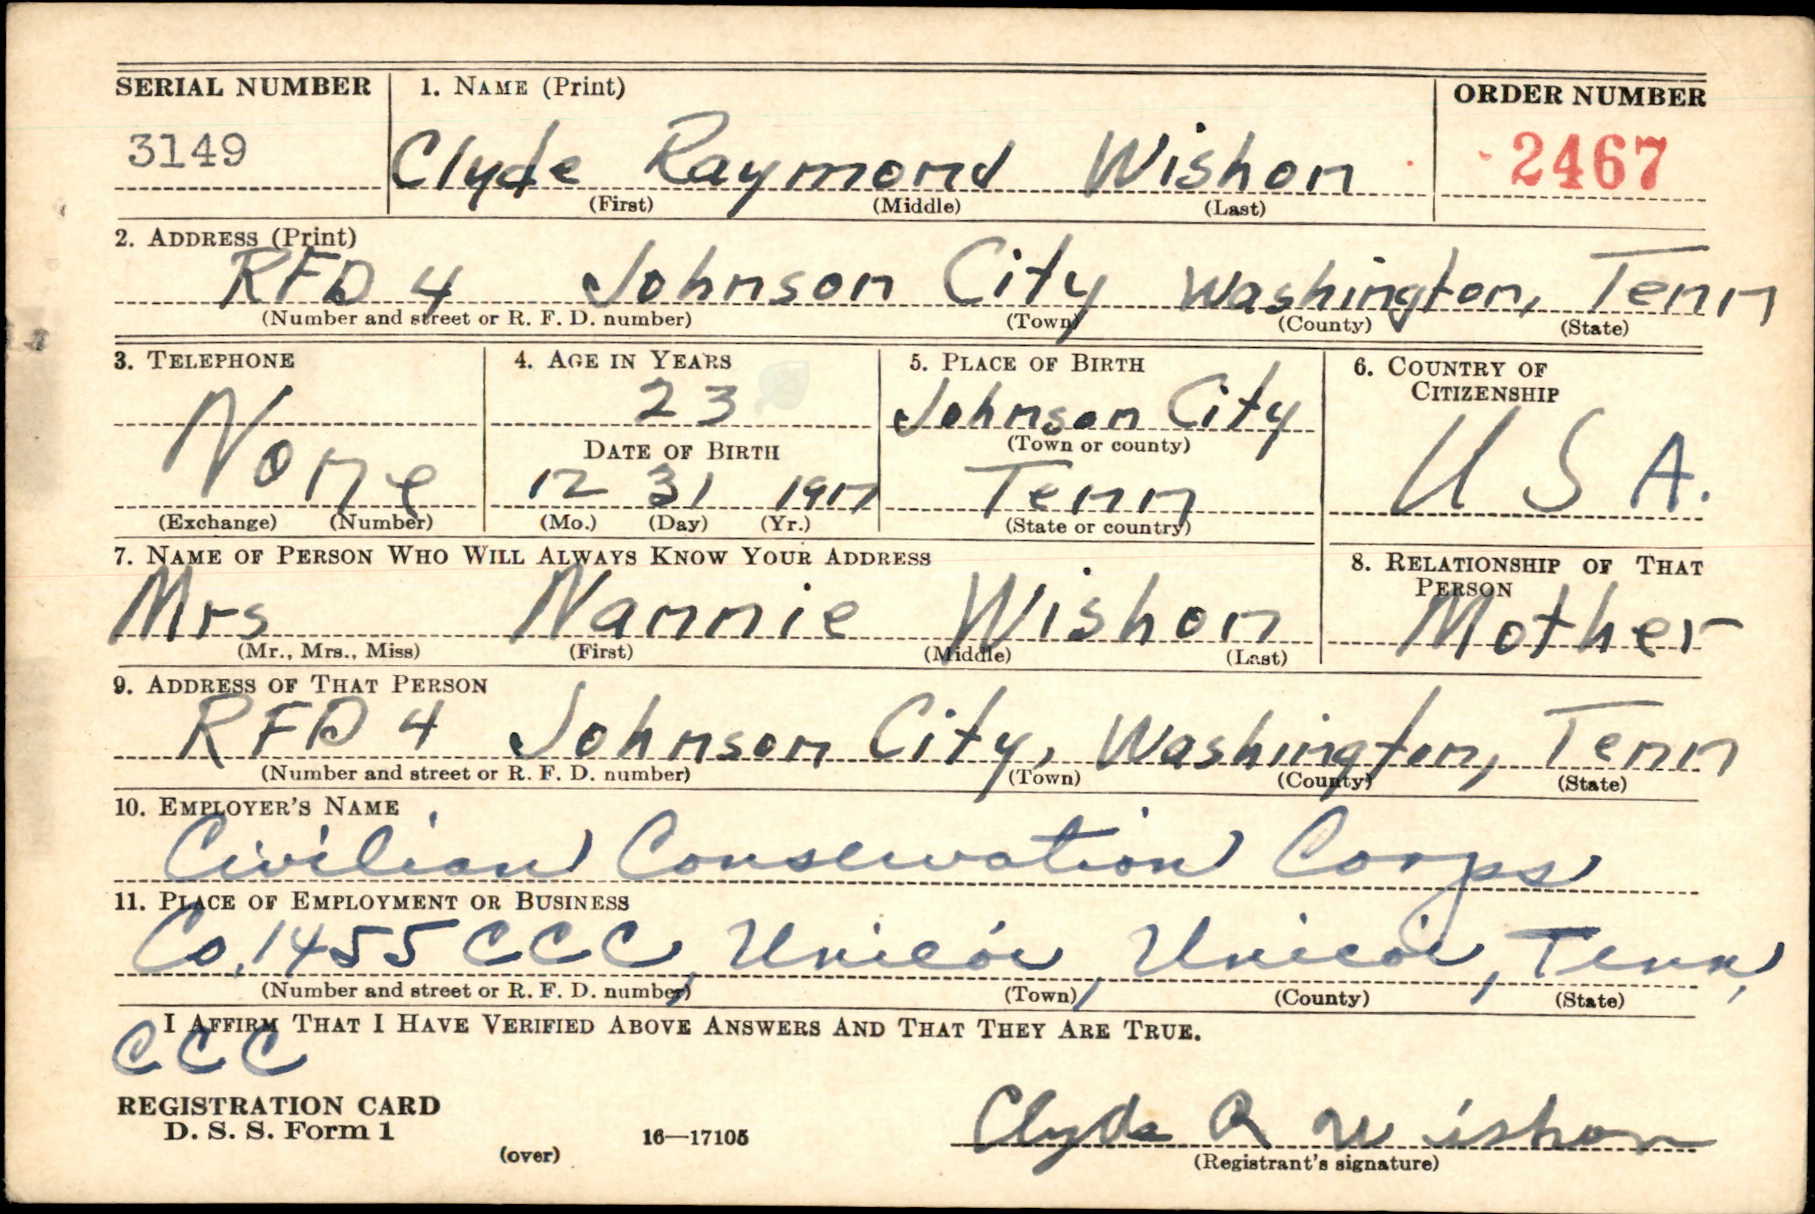 SERIAL NUMBER 1. NAME (Print) ORDER NUMBER
3149 Clyde Raymond Wishon 2467
(First) (Middle) (Last)
2. ADDRESS (Print)
RFD 4 Johnson City Washington, Tenn
(Number and street or R. F. D. number) (Town) (County) (State)
3. TELEPHONE 4. AGE IN YEARS 5. PLACE OF BIRTH 6. COUNTRY OF CITIZENSHIP
None 23 Johnson City U S A.
DATE OF BIRTH (Town or county)
12 31 1917 Tenn
(Exchange) (Number) (Mo.) (Day) (Yr.) (State or country)
7. NAME OF PERSON WHO WILL ALWAYS KNOW YOUR ADDRESS 8. RELATIONSHIP OF THAT PERSON
Mrs Nannie Wishon Mother
(Mr., Mrs., Miss) (First) (Middle) (Last)
9. ADDRESS OF THAT PERSON
RFD 4 Johnson City, Washington, Tenn
(Number and street or R. F. D. number) (Town) (County) (State)
10. EMPLOYER'S NAME
Civilian Conservation Corps
11. PLACE OF EMPLOYMENT OR BUSINESS
Co. 1455 CCC, Unicoi, Unicoi, Tenn,
(Number and street or R. F. D. number) (Town) (County) (State)
I AFFIRM THAT I HAVE VERIFIED ABOVE ANSWERS AND THAT THEY ARE TRUE.
CCC
REGISTRATION CARD
D. S. S. Form 1 Clyde R Wishon
(over) 16—17105 (Registrant's signature)